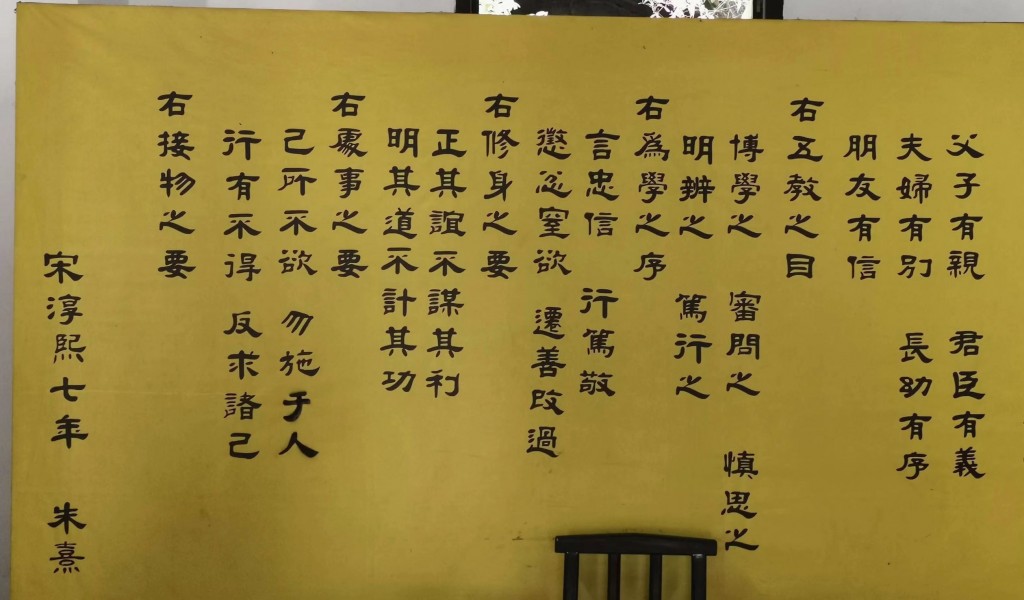 父子有親 君臣有義
夫婦有別 長幼有序
朋友有信
右五教之目
博學之 審問之 慎思之
明辨之 篤行之
右為學之序
言忠信 行篤敬
懲忿窒欲 遷善改過
右修身之要
正其誼不謀其利
明其道不計其功
右處事之要
己所不欲 勿施于人
行有不得 反求諸己
右接物之要
宋淳熙七年 朱熹